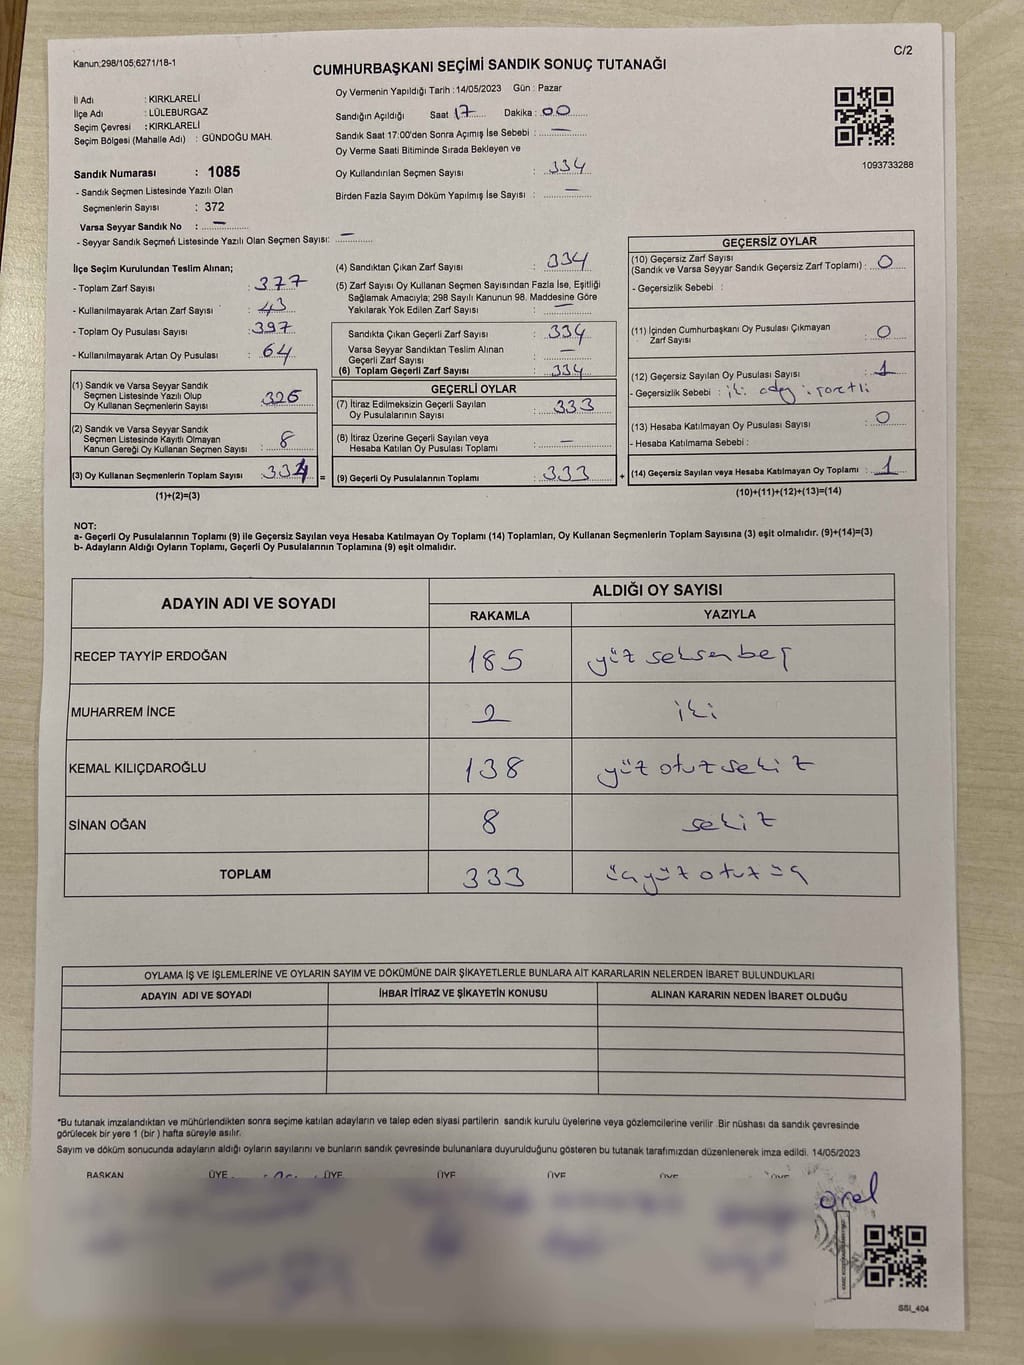 Kanun;298/105;6271/18-1
C/2
CUMHURBAŞKANI SEÇİMİ SANDIK SONUÇ TUTANAĞI
İl Adı : KIRKLARELİ
İlçe Adı : LÜLEBURGAZ
Seçim Çevresi : KIRKLARELİ
Seçim Bölgesi (Mahalle Adı) : GÜNDOĞU MAH.
Sandık Numarası : 1085
- Sandık Seçmen Listesinde Yazılı Olan
Seçmenlerin Sayısı : 372
Varsa Seyyar Sandık No : —
- Seyyar Sandık Seçmen Listesinde Yazılı Olan Seçmen Sayısı: —
Oy Vermenin Yapıldığı Tarih : 14/05/2023 Gün : Pazar
Sandığın Açıldığı Saat 17 Dakika : 00
Sandık Saat 17:00'den Sonra Açımış İse Sebebi : —
Oy Verme Saati Bitiminde Sırada Bekleyen ve
Oy Kullandırılan Seçmen Sayısı : 334
Birden Fazla Sayım Döküm Yapılmış İse Sayısı : —
1093733288
İlçe Seçim Kurulundan Teslim Alınan;
- Toplam Zarf Sayısı : 377
- Kullanılmayarak Artan Zarf Sayısı : 43
- Toplam Oy Pusulası Sayısı : 397
- Kullanılmayarak Artan Oy Pusulası : 64
(1) Sandık ve Varsa Seyyar Sandık
Seçmen Listesinde Yazılı Olup
Oy Kullanan Seçmenlerin Sayısı 326
(2) Sandık ve Varsa Seyyar Sandık
Seçmen Listesinde Kayıtlı Olmayan
Kanun Gereği Oy Kullanan Seçmen Sayısı : 8
(3) Oy Kullanan Seçmenlerin Toplam Sayısı : 334 =
(1)+(2)=(3)
(4) Sandıktan Çıkan Zarf Sayısı : 334
(5) Zarf Sayısı Oy Kullanan Seçmen Sayısından Fazla İse, Eşitliği
Sağlamak Amacıyla; 298 Sayılı Kanunun 98. Maddesine Göre
Yakılarak Yok Edilen Zarf Sayısı : —
Sandıkta Çıkan Geçerli Zarf Sayısı : 334
Varsa Seyyar Sandıktan Teslim Alınan
Geçerli Zarf Sayısı : —
(6) Toplam Geçerli Zarf Sayısı : 334
GEÇERLİ OYLAR
(7) İtiraz Edilmeksizin Geçerli Sayılan
Oy Pusulalarının Sayısı : 333
(8) İtiraz Üzerine Geçerli Sayılan veya
Hesaba Katılan Oy Pusulası Toplamı : —
(9) Geçerli Oy Pusulalarının Toplamı : 333 +
GEÇERSİZ OYLAR
(10) Geçersiz Zarf Sayısı
(Sandık ve Varsa Seyyar Sandık Geçersiz Zarf Toplamı) : 0
- Geçersizlik Sebebi :
(11) İçinden Cumhurbaşkanı Oy Pusulası Çıkmayan
Zarf Sayısı : 0
(12) Geçersiz Sayılan Oy Pusulası Sayısı : 1
- Geçersizlik Sebebi : iki aday işaretli
(13) Hesaba Katılmayan Oy Pusulası Sayısı : 0
- Hesaba Katılmama Sebebi :
(14) Geçersiz Sayılan veya Hesaba Katılmayan Oy Toplamı : 1
(10)+(11)+(12)+(13)=(14)
NOT:
a- Geçerli Oy Pusulalarının Toplamı (9) ile Geçersiz Sayılan veya Hesaba Katılmayan Oy Toplamı (14) Toplamları, Oy Kullanan Seçmenlerin Toplam Sayısına (3) eşit olmalıdır. (9)+(14)=(3)
b- Adayların Aldığı Oyların Toplamı, Geçerli Oy Pusulalarının Toplamına (9) eşit olmalıdır.
ADAYIN ADI VE SOYADI
ALDIĞI OY SAYISI
RAKAMLA YAZIYLA
RECEP TAYYİP ERDOĞAN 185 yüz seksen beş
MUHARREM İNCE 2 iki
KEMAL KILIÇDAROĞLU 138 yüz otuz sekiz
SİNAN OĞAN 8 sekiz
TOPLAM 333 üçyüz otuz üç
OYLAMA İŞ VE İŞLEMLERİNE VE OYLARIN SAYIM VE DÖKÜMÜNE DAİR ŞİKAYETLERLE BUNLARA AİT KARARLARIN NELERDEN İBARET BULUNDUKLARI
ADAYIN ADI VE SOYADI İHBAR İTİRAZ VE ŞİKAYETİN KONUSU ALINAN KARARIN NEDEN İBARET OLDUĞU
*Bu tutanak imzalandıktan ve mühürlendikten sonra seçime katılan adayların ve talep eden siyasi partilerin sandık kurulu üyelerine veya gözlemcilerine verilir .Bir nüshası da sandık çevresinde
görülecek bir yere 1 (bir ) hafta süreyle asılır.
Sayım ve döküm sonucunda adayların aldığı oyların sayılarını ve bunların sandık çevresinde bulunanlara duyurulduğunu gösteren bu tutanak tarafımızdan düzenlenerek imza edildi. 14/05/2023
BAŞKAN ÜYE ÜYE ÜYE ÜYE ÜYE ÜYE
SSI_404